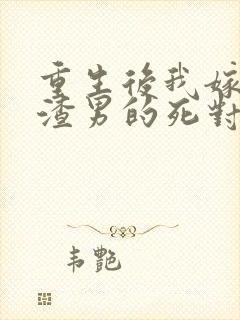 重生後我嫁
渣男的死對
韦艷